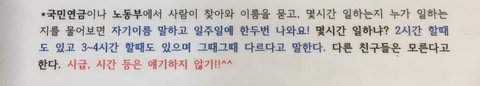 *국민연금이나 노동부에서 사람이 찾아와 이름을 묻고, 몇시간 일하는지 누가 일하는
지를 물어보면 자기이름 말하고 일주일에 한두번 나와요! 몇시간 일하냐? 2시간 할때
도 있고 3~4시간 할때도 있으며 그때그때 다르다고 말한다. 다른 친구들은 모른다고
한다. 시급, 시간 등은 얘기하지 않기!!^^